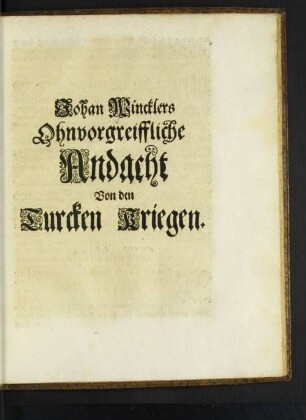 Johan Wincklers
Ohnvorgreiffliche
Andacht
Von den
Turcken Kriegen.